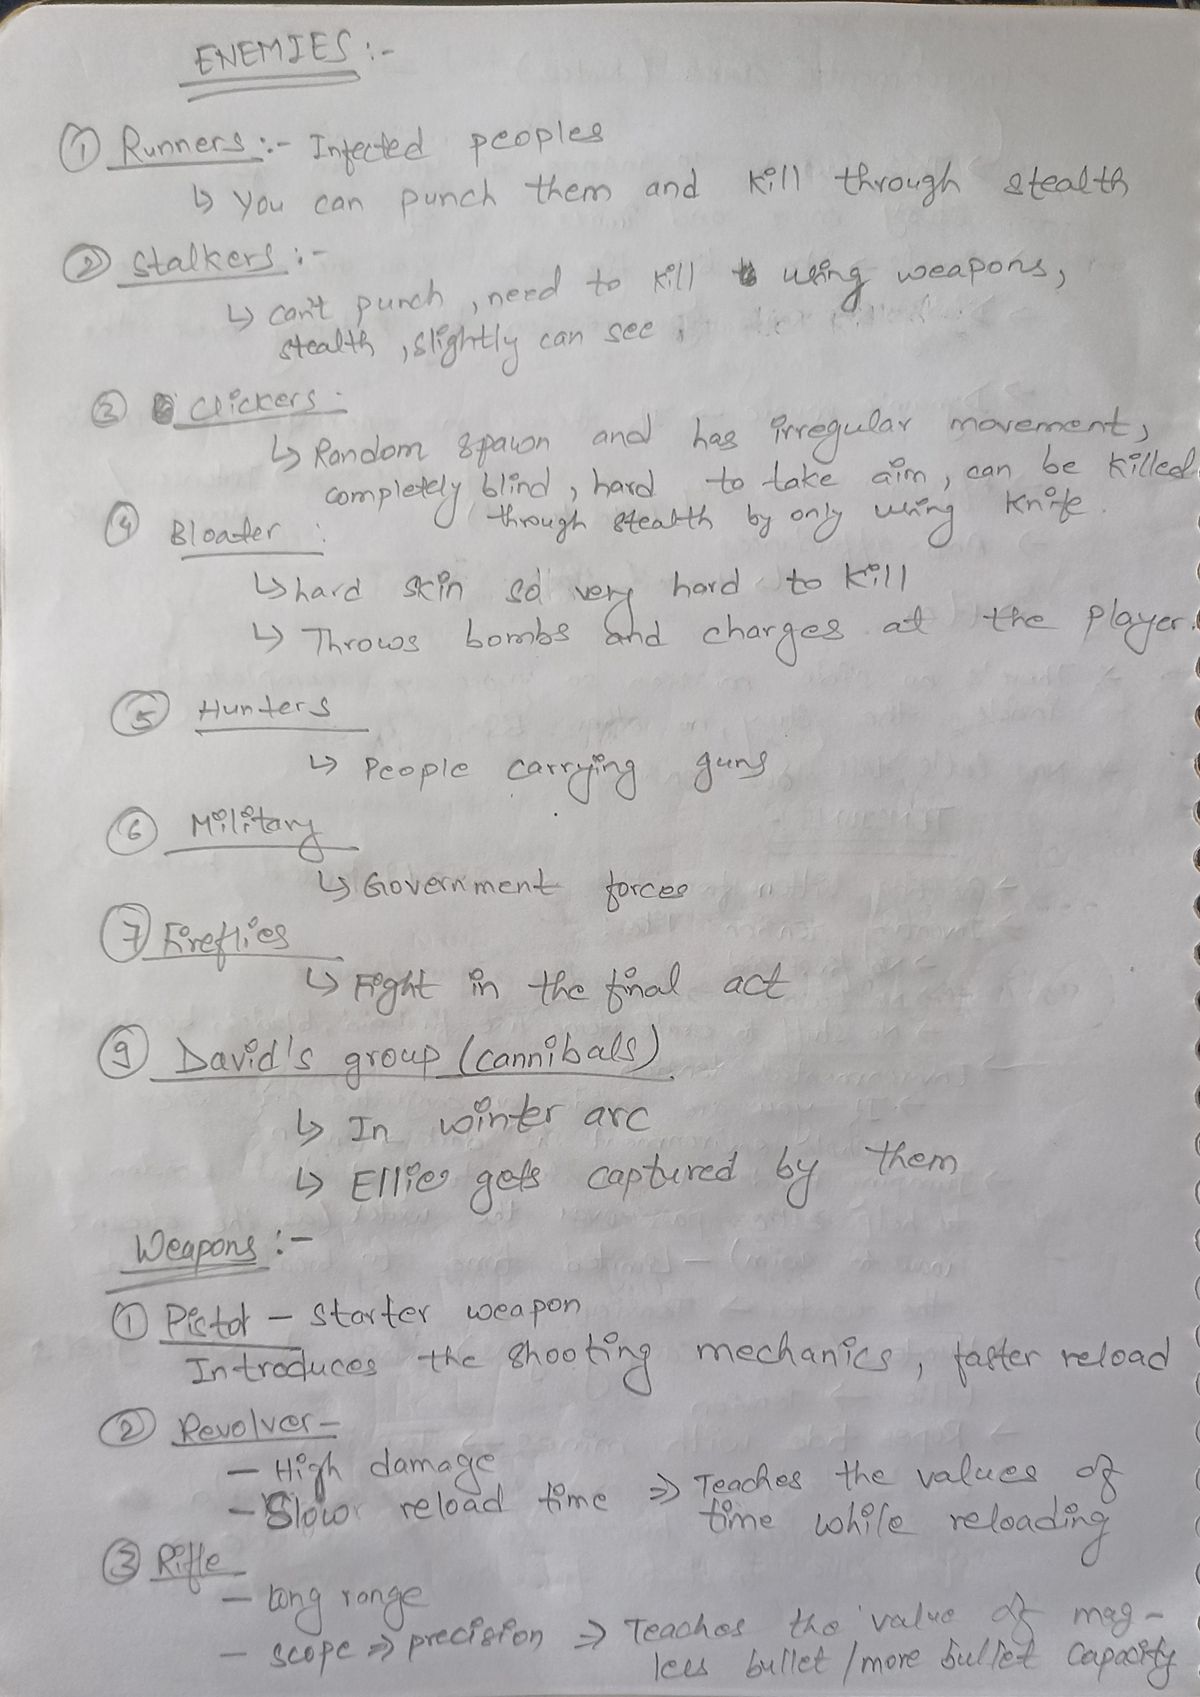 ENEMIES :-
① Runners :- Infected peoples
↳ You can punch them and kill through stealth
② Stalkers :-
↳ can't punch, need to kill using weapons,
stealth, slightly can see.
③ Clickers :
↳ Random spawn and has irregular movement,
completely blind, hard to take aim, can be killed
through stealth by only using knife.
④ Bloater :
↳ hard skin so very hard to kill
↳ Throws bombs and charges at the player.
⑤ Hunters
↳ People carrying guns
⑥ Military
↳ Government forces
⑦ Fireflies
↳ Fight in the final act
⑨ David's group (cannibals)
↳ In winter arc
↳ Ellie gets captured by them
Weapons :-
① Pistol - starter weapon
Introduces the shooting mechanics, faster reload
② Revolver -
- High damage
- Slow reload time ⇒ Teaches the values of
time while reloading
③ Rifle
- long range
- scope ⇒ precision ⇒ Teaches the value of mag -
less bullet / more bullet capacity